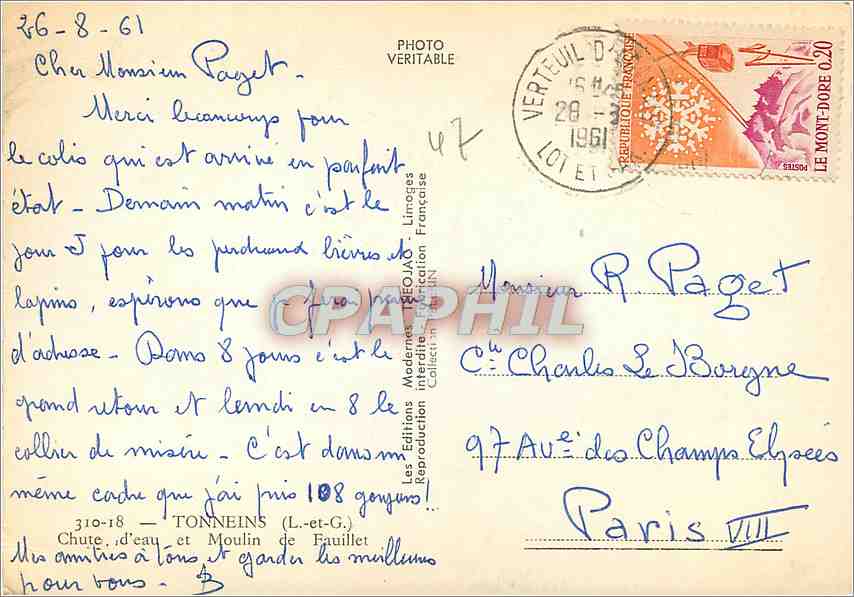 26-8-61
Cher Monsieur Paget -
Merci beaucoup pour
le colis qui est arrivé en parfait
état - Demain matin c'est le
jour J pour les perdreaux lièvres et
lapins, espérons que je ferai preuve
d'adresse - Dans 8 jours c'est le
grand retour et lundi en 8 le
collier de misère - C'est dans un
même cadre que j'ai pris 108 goujons!
310-18 — TONNEINS (L.-et-G.)
Chute d'eau et Moulin de Fauillet
Mes amitiés à tous et gardez les meilleures
pour vous - B
PHOTO
VERITABLE
47
Les Editions Modernes THEOJAC - Limoges
Reproduction interdite - Fabrication Française
Collection
VERTEUIL D'
28 -8
1961
LOT ET
REPUBLIQUE FRANÇAISE
LE MONT-DORE 0,20
POSTES
Monsieur R Paget
Cie Charles Le Borgne
97 Ave des Champs Elysées
Paris VIII
CPAPHIL